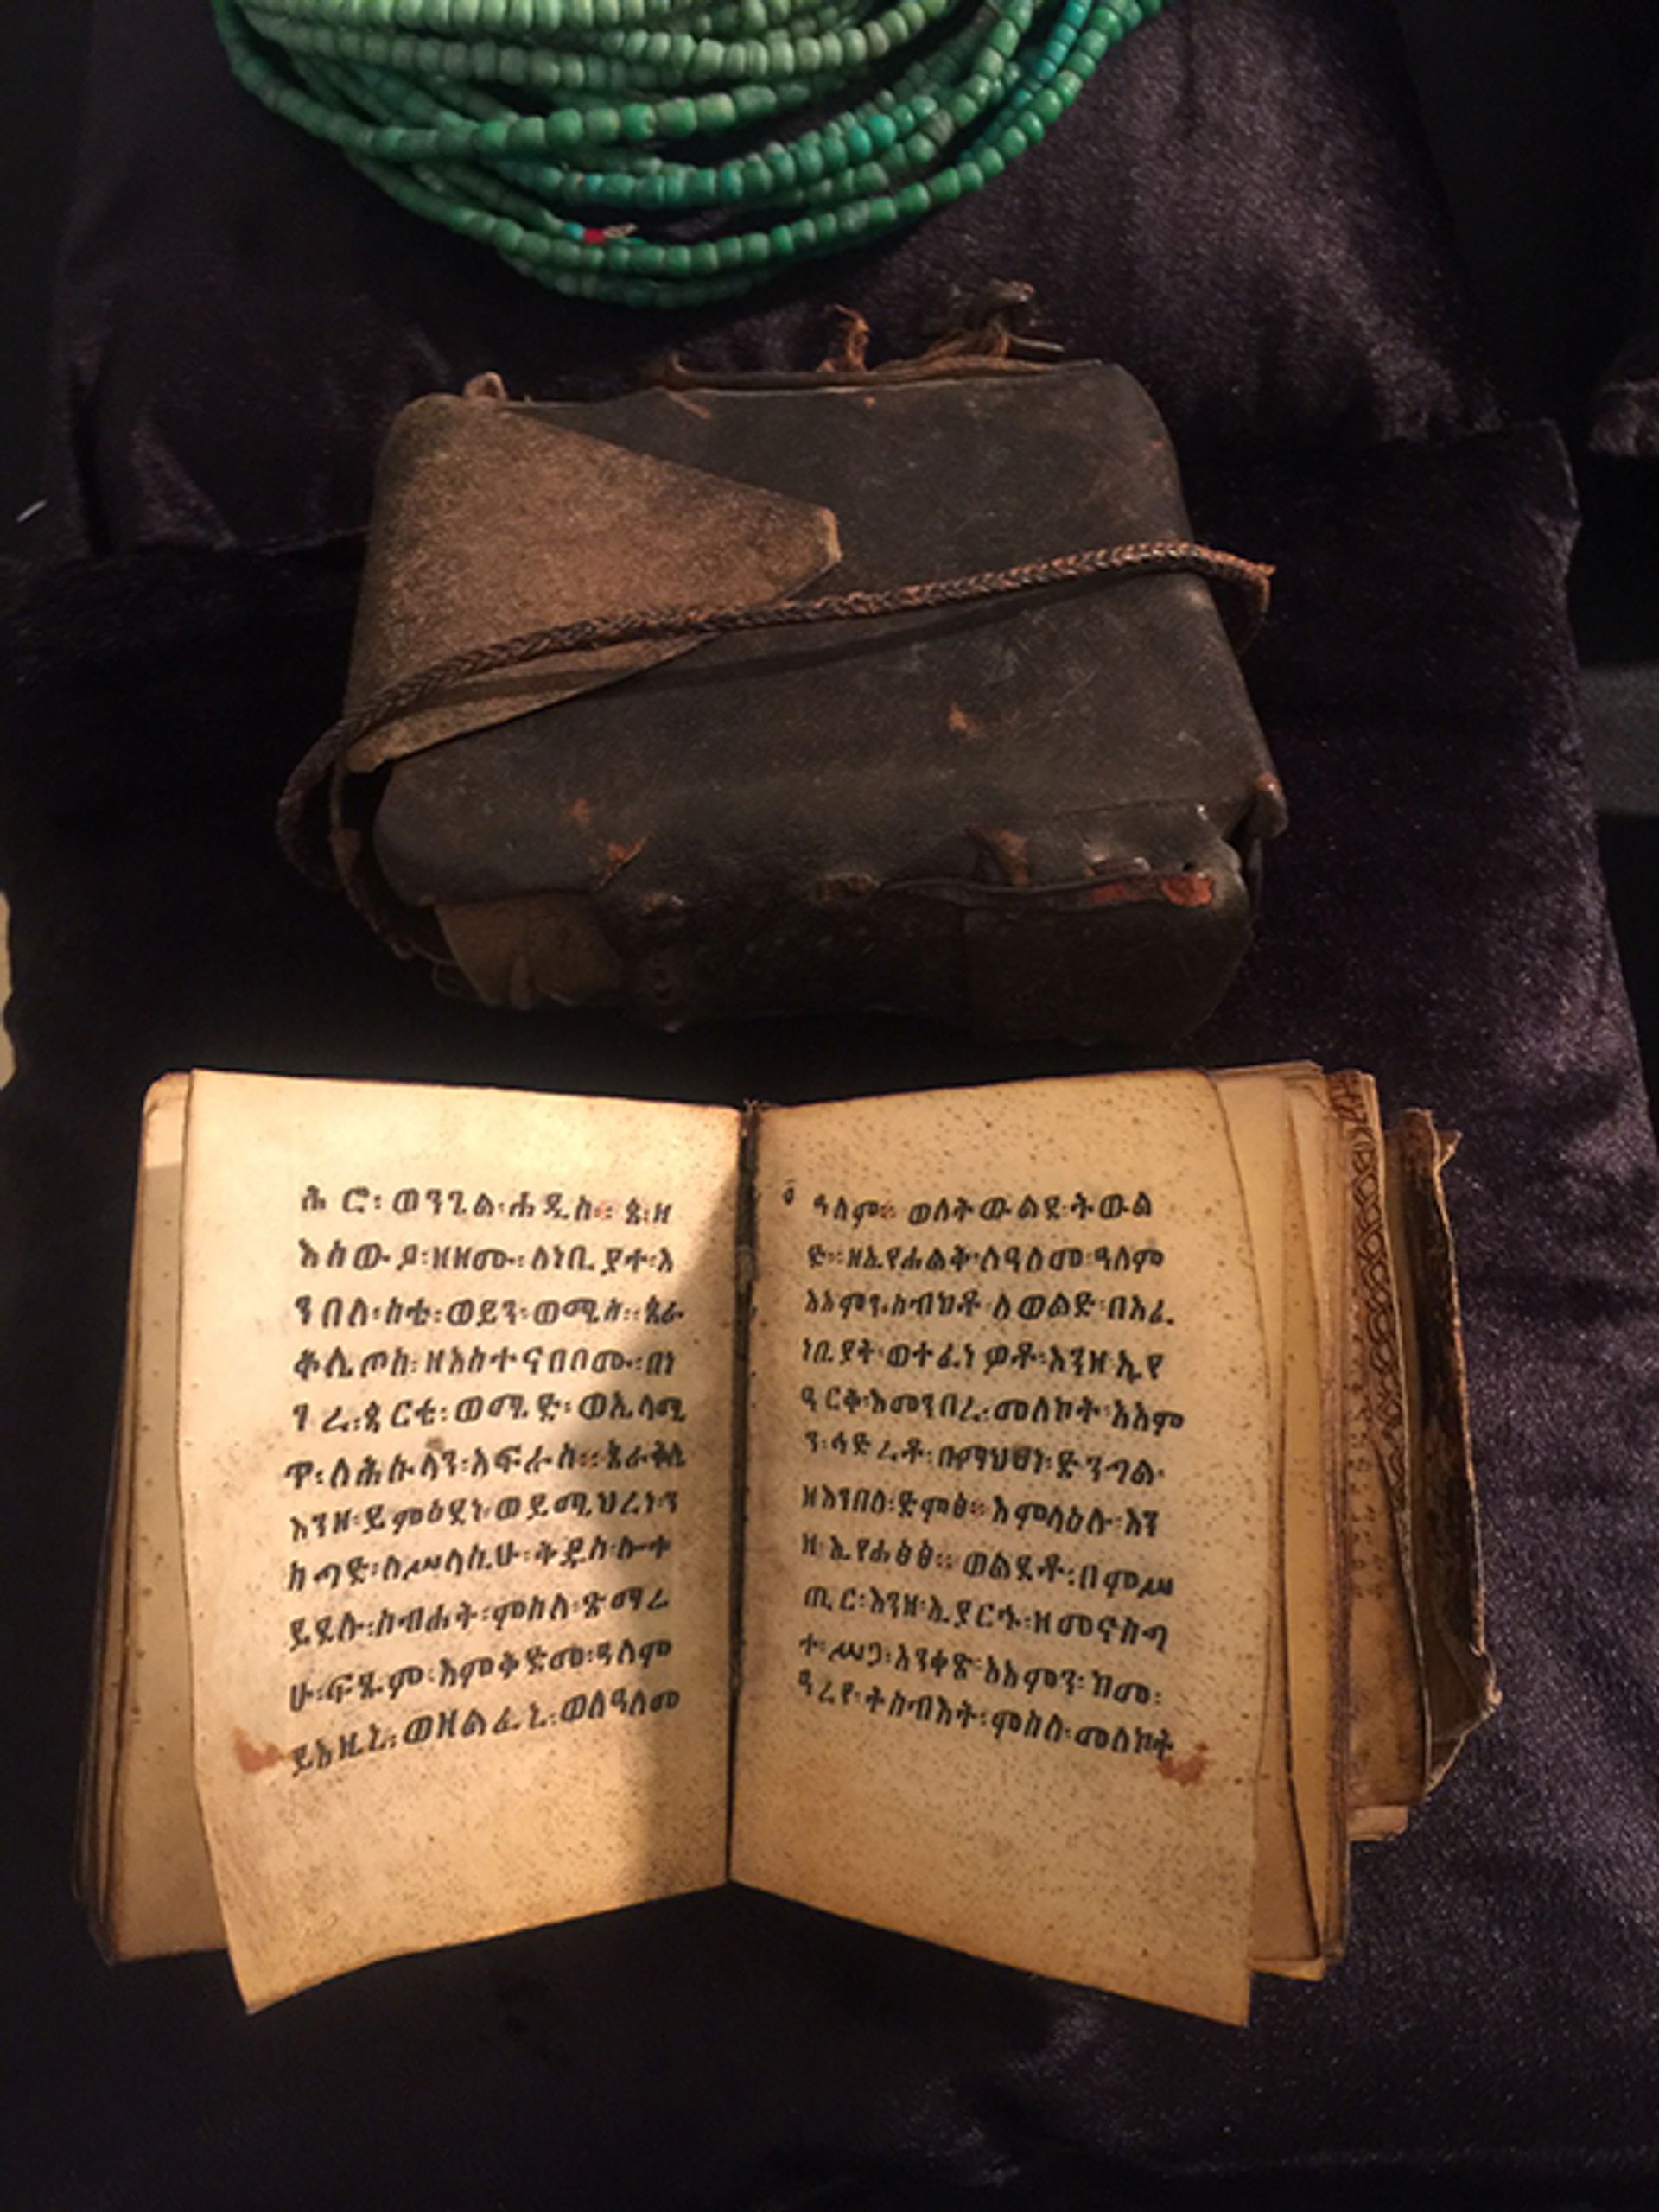 ሕ ሮ፡ ወንጌል፡ሐዲስ፡፡ ጴ፡ዘ
እስ ው ይ፡ዘዘሙ፡ ለነቢ ያተ፡እ
ን በለ፡ ስቴ፡ ወይን፡ ወሚስ፡፡ ጴራ
ቅሊጦስ፡ ዘአስተ ናበቦሙ፡ በነ
ገ ረ፡ ጳ ርቴ፡ ወሚ ድ፡ ወኢላሜ
ጥ፡ ለሕዙላን፡ አፍራስ፡፡ ጴራቅሊ
እንዘ፡ ይ ምዕደነ፡ ወ ይሜህረነ፡ን
ስ ግድ፡ ለሥላሴሁ፡ ቅዱስ፡
ይደሉ፡ ስብሐት፡ ምስለ፡ ጽ ማሬ
ሁ፡ ፍጹም፡ እምቅድመ፡ ዓለም
ይእዜኒ፡ ወዘልፈኒ፡ ወለዓለመ
ዓለም፡፡ ወለት ውልደ፡ ት ውል
ድ፡፡ ዘኢየሐልቅ፡ ለዓለመ፡ ዓለም
አአምን፡ ስብከቶ፡ ለ ወልድ፡ በአፈ
ነቢ ያት፡ ወተፈነ ዎቶ፡ እንዘ፡ ኢ የ
ዓ ርቅ፡ እመንበረ፡ መለኮት፡ አአም
ን፡ ኅድ ረቶ፡ በማህፀነ፡ ድ ንግል
ዘእንበለ፡ ድምፅ፡፡ እ ምላዕሉ፡ እን
ዘ፡ ኢ የሐፅፅ፡፡ ወልደቶ፡ በ ምሥ
ጢ ር፡ እንዘ፡ ኢ ያርኁ፡ ዘ መኖስግ
ተ፡ ሥጋ፡ አንቀጽ፡ አአምን፡ ከመ፡
ዓ ረየ፡ ትስብእት፡ ምስለ፡ መለኮት